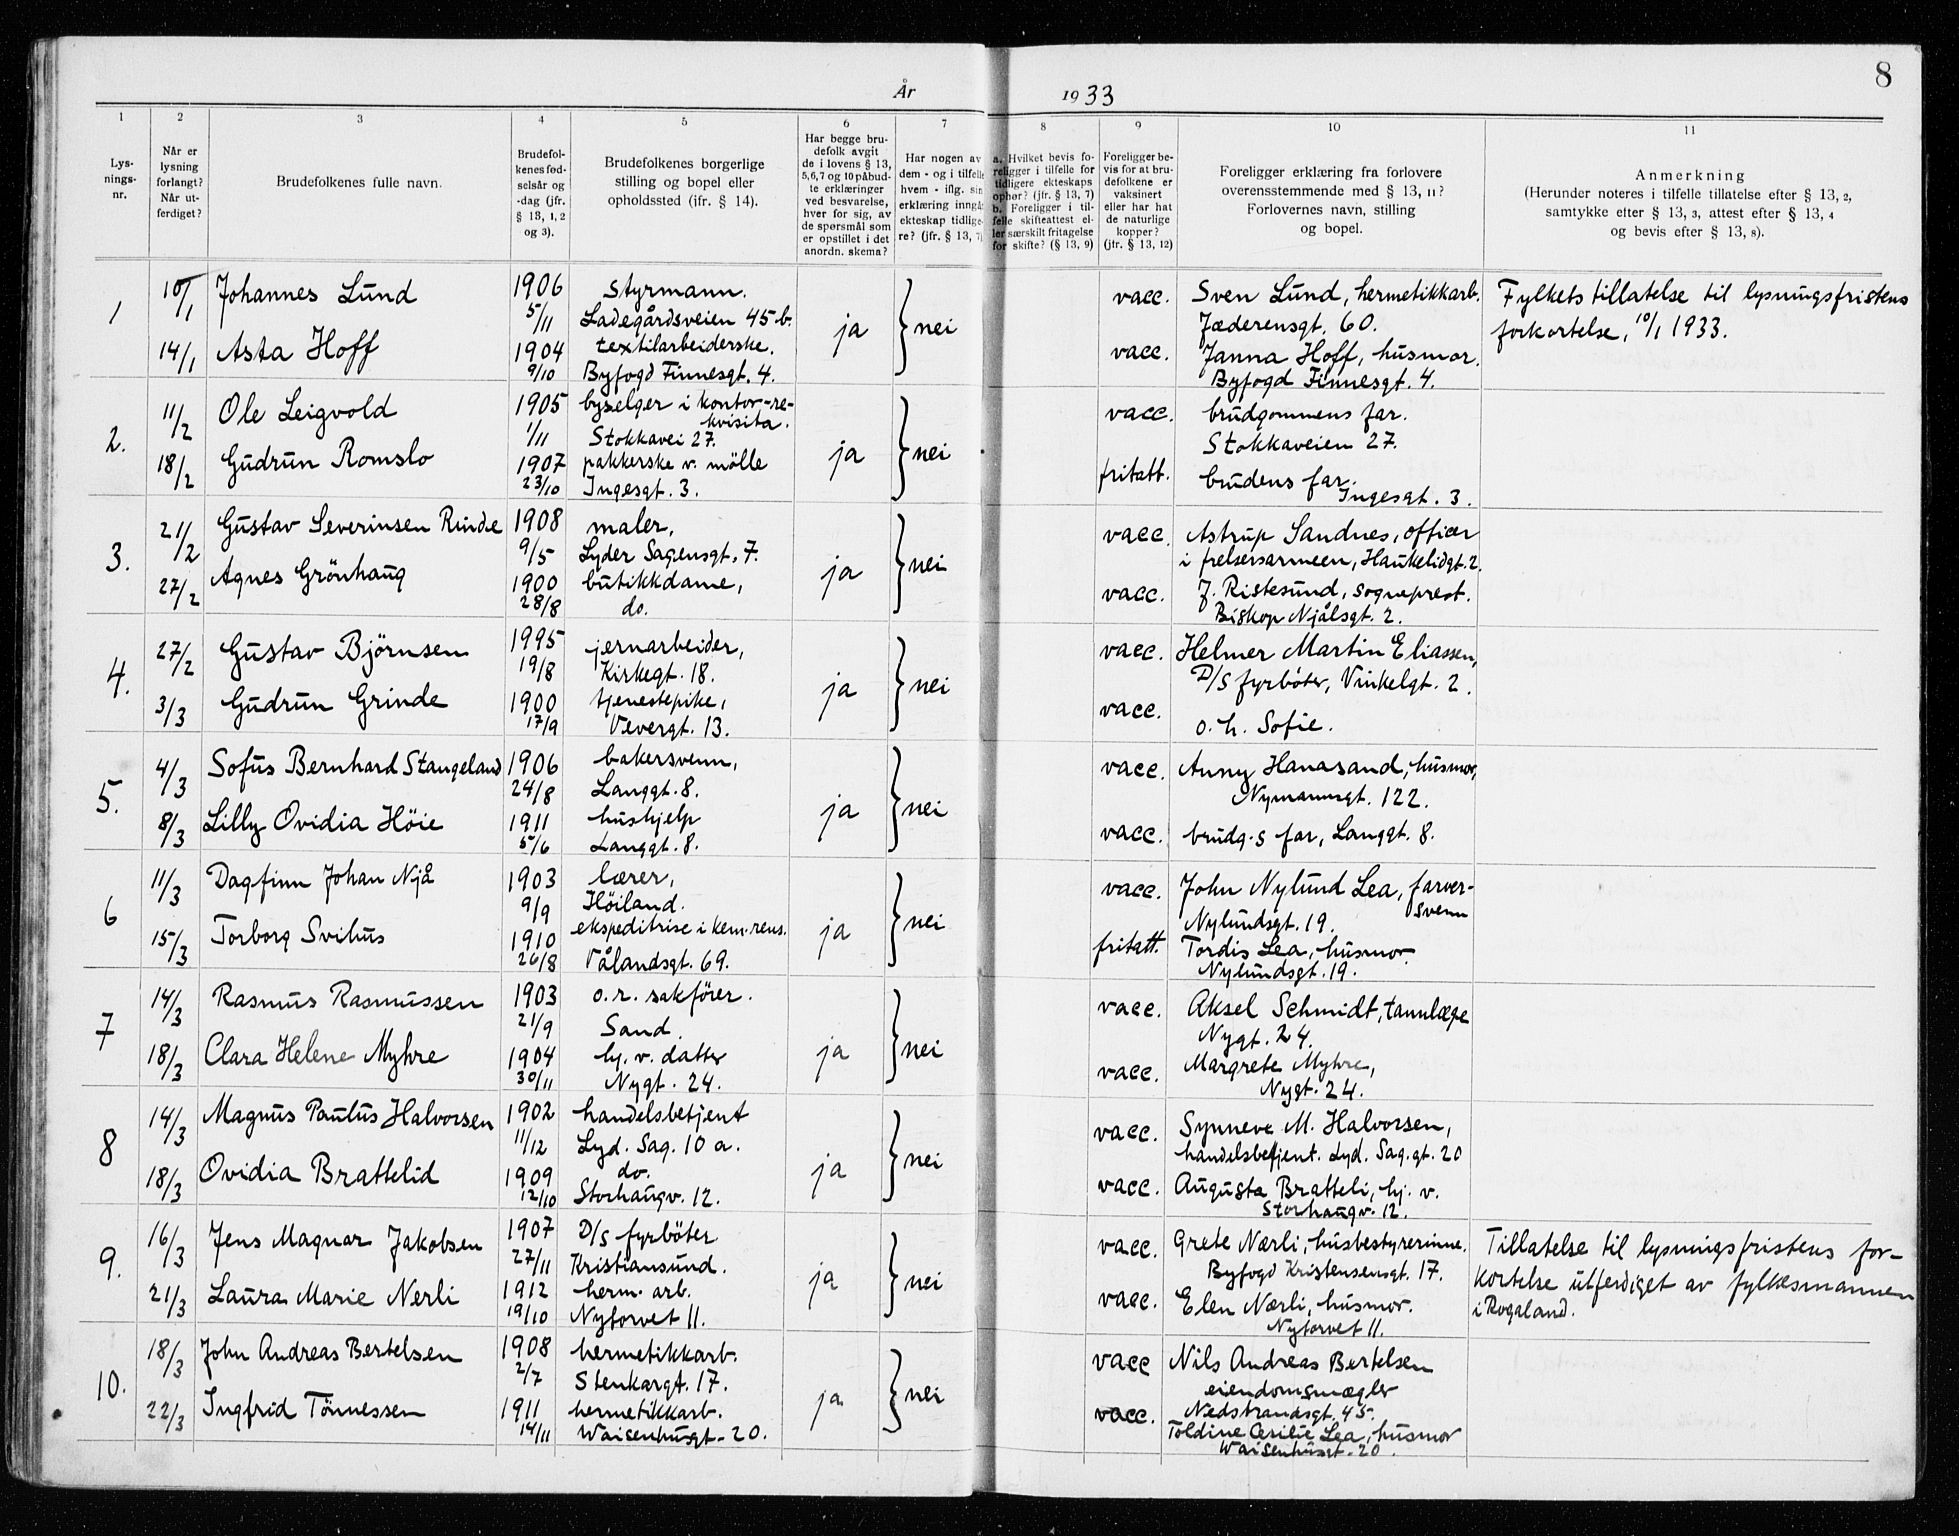 8
År 1933
1 2 3 4 5 6 7 8 9 10 11
Lys-
nings-
nr.
Når er
lysning
forlangt?
Når ut-
ferdiget?
Brudefolkenes fulle navn.
Brudefol-
kenes fød-
selsår og
-dag (jfr.
§ 13, 1, 2
og 3).
Brudefolkenes borgerlige
stilling og bopel eller
opholdssted (jfr. § 14).
Har begge bru-
defolk avgit
de i lovens § 13,
5,6,7 og 10 påbud-
te erklæringer
ved besvarelse,
hver for sig, av
de spørsmål som
er opstillet i det
anordn. skema?
Har nogen av
dem - og i tilfelle
hvem - iflg. sin
erklæring inngå
ekteskap tidlige-
re? (jfr. § 13, 7)
a. Hvilket bevis fo-
religger i tilfelle for
tidligere ekteskaps
ophør? (jfr. § 13, 7)
b. Foreligger i til-
felle skifteattest el-
ler særskilt fritagelse
for skifte? (§ 13, 9)
Foreligger be-
vis for at bru-
defolkene er
vaksinert
eller har hat
de naturlige
kopper?
(jfr. § 13, 12)
Foreligger erklæring fra forlovere
overensstemmende med § 13, 11?
Forlovernes navn, stilling
og bopel.
Anmerkning
(Herunder noteres i tilfelle tillatelse efter § 13, 2,
samtykke efter § 13, 3, attest efter § 13, 4
og bevis efter § 13, 8).
1
10/1
14/1
Johannes Lund
Asta Hoff
1906
5/11
1904
9/10
styrmann.
Ladegårdsveien 45 b.
textilarbeiderske.
Byfogd Finnesgt. 4.
ja
nei
vacc.
vacc.
Sven Lund, hermetikkarb.
Jæderensgt. 60.
Janna Hoff, husmor.
Byfogd Finnesgt. 4.
Fylkets tillatelse til lysningsfristens
forkortelse, 10/1 1933.
2.
11/2
18/2
Ole Leigvold
Gudrun Romslo
1905
1/11
1907
23/10
byselger i kontor-re-
kvisita.
Stokkavei 27.
pakkerske v. mölle
Ingesgt. 3.
ja
nei
vacc.
fritatt.
brudgommens far.
Stokkaveien 27.
brudens far.
Ingesgt. 3.
3.
21/2
27/2
Gustav Severinsen Rinde
Agnes Grönhaug
1908
9/5
1900
28/8
maler,
Lyder Sagensgt. 7.
butikkdame,
do.
ja
nei
vacc.
vacc.
Astrup Sandnes, officer
i frelsesarmeen, Haukelidgt. 2.
J. Ristesund, sogneprest.
Biskop Njålsgt. 2.
4.
27/2
3/3
Gustav Björnsen
Gudrun Grinde
1995
19/8
1900
17/9
jernarbeider,
Kirkegt. 18.
tjenestepike,
Vevergt. 13.
ja
nei
vacc.
vacc.
Helmer Martin Eliassen,
D/S fyrböter, Vinkelgt. 2.
o. h. Sofie.
5.
4/3
8/3
Sofus Bernhard Stangeland
Lilly Ovidia Höie
1906
24/8
1911
5/6
bakersvenn,
Langgt. 8.
hushjelp
Langgt. 8.
ja
nei
vacc.
vacc.
Anny Hanasand, husmor,
Nymannsgt. 122.
brudg.s far, Langgt. 8.
6
11/3
15/3
Dagfinn Johan Njå
Torborg Svihus
1903
9/9
1910
26/8
lærer,
Höiland.
ekspeditrise i kem. rens.
Vålandsgt. 69.
ja
nei
vacc.
fritatt.
John Nylund Lea, farver-
svenn
Nylundsgt. 19.
Tordis Lea, husmor.
Nylundsgt. 19.
7
14/3
18/3
Rasmus Rasmussen
Clara Helene Myhre
1903
21/9
1904
30/11
o.r. sakförer.
Sand.
hj. v. datter
Nygt. 24.
ja
nei
vacc.
vacc.
Aksel Schmidt, tannlæge
Nygt. 24.
Margrete Myhre,
Nygt. 24.
8
14/3
18/3
Magnus Paulus Halvorsen
Ovidia Brattelid
1902
11/12
1909
12/10
handelsbetjent
Lyd. Sag. 10 a.
do.
Storhaugv. 12.
ja
nei
vacc.
vacc.
Synneve M. Halvorsen,
handelsbetjent. Lyd. Sag.gt. 20
Augusta Bratteli, hj. v.
Storhaugv. 12.
9.
16/3
21/3
Jens Magnar Jakobsen
Laura Marie Nerli
1907
27/11
1912
19/10
D/S fyrböter
Kristiansund.
herm. arb.
Nytorvet 11.
ja
nei
vacc.
vacc.
Grete Nærli, husbestyrerinne.
Byfogd Kristensensgt. 17.
Elen Nærli, husmor.
Nytorvet 11.
Tillatelse til lysningsfristens for-
kortelse utferdiget av fylkesmannen
i Rogaland.
10.
18/3
22/3
John Andreas Bertelsen
Ingfrid Tönnessen
1908
2/7
1911
14/11
hermetikkarb.
Stenkargt. 17.
hermetikkarb.
Waisenhusgt. 20.
ja
nei
vacc
vacc.
Nils Andreas Bertelsen
eiendomsmægler
Nedstrandsgt. 45.
Toldine Cesilie Lea, husmor
Waisenhusgt. 20.